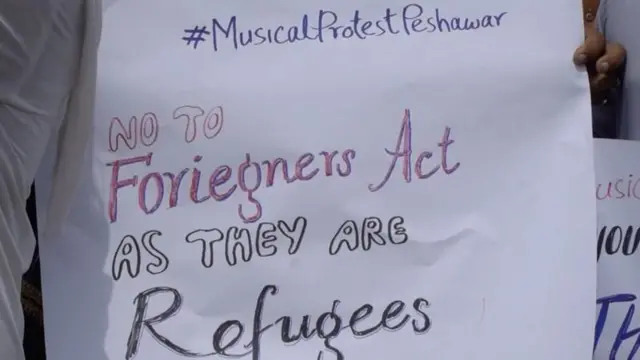 #MusicalProtestPeshawar
NO TO
Foriegners Act
AS THEY ARE
Refugees
usic
YOU
TH